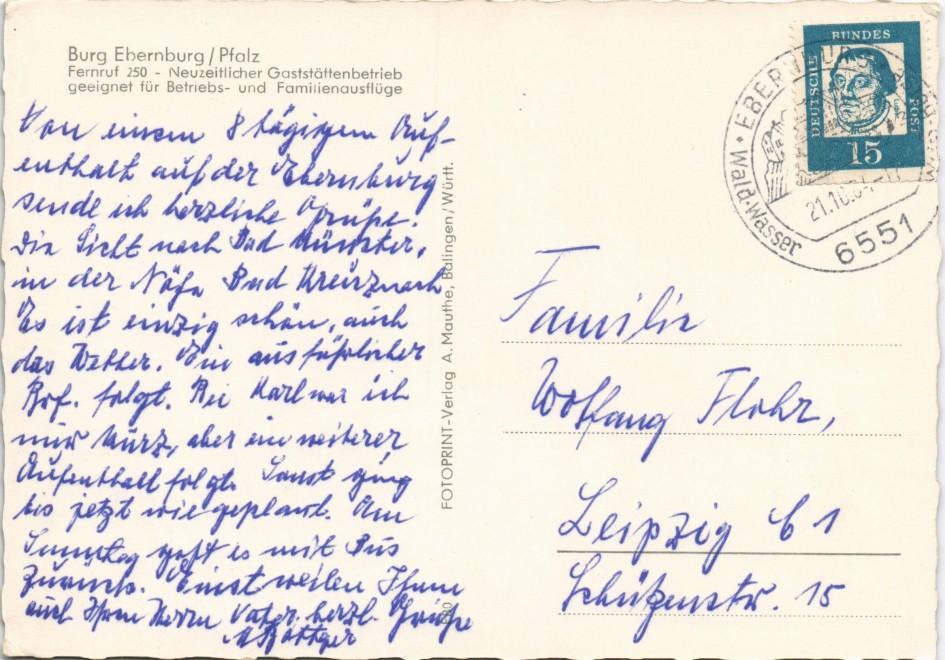 Burg Ebernburg/Pfalz
Fernruf 250 - Neuzeitlicher Gaststättenbetrieb
geeignet für Betriebs- und Familienausflüge
Von einem 8 tägigem Auf-
enthalt auf der Ebernburg
sende ich herzliche Grüße.
Die Sicht nach Bad Münster,
in der Nähe Bad Kreuznach
Es ist einzig schön, auch
das Wetter. Ein ausführlicher
Brf. folgt. Bei Karl war ich
nur kurz, aber ein weiterer
Aufenthalt folgt. Sonst ging
bis jetzt wie geplant. Am
Samstag geht es mit Bus
zurück. Einstweilen Ihnen
auch Ihrem Herrn Vater herzl. Grüße
Böttger
FOTOPRINT-Verlag A. Mauthe, Balingen/Württ.
DEUTSCHE BUNDES POST
15
EBERNBURG
Wald · Wasser
21.10.
6551
Familie
Wolfgang Flohr,
Leipzig C 1
Schützenstr. 15